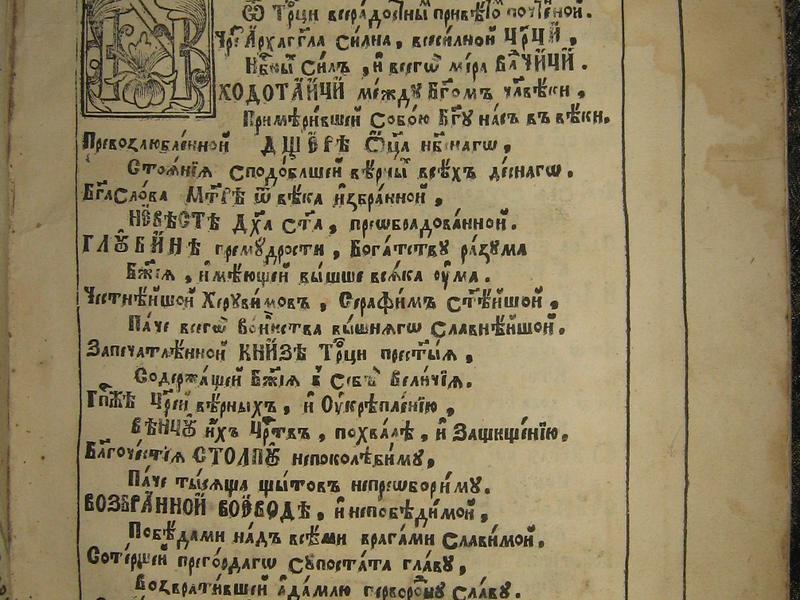 Ѿ Трⷪ҇цы всерадостны привѣтⷪ҇ почтенной.
Чрⷭ҇ Арха́гг҃ла Си́лна, всеси́лной Чр҃ЧЙ,
Нбⷭ҇ны Си́лъ, и҆ всегѡ̀ мі́ра ВЛⷣЧЙЧЙ.
ХОДОТА́ЙЧЙ между̀ Бг҃омъ члвѣки,
Примѣри́вшей Собо́ю Бг҃у на́съ въ вѣ́ки.
Превозлю́бленной ДЩЕ́РѢ Ѻц҃а нбⷭ҇нагѡ,
Стоѧ́нїѧ сподо́бшей вѣ́рны всѣ́хъ деснагѡ.
Бг҃а Сло́ва МТ҃РѢ ѿ вѣ́ка и҆збра́нной,
НЕВѢ́СТѢ Дх҃а Ст҃а, преѡбрадова́нной.
ГЛꙊБИНѢ̀ премꙋ́дрости, Бога́тствꙋ ра́зꙋма
Бж҃їѧ, и҆мѣ́ющей вы́шше всѧ́ка оу҆ма.
Честнѣ́йшой Херꙋви́мовъ, Серафи́мъ Ст҃ѣ́йшой,
Па́че всегѡ̀ во́инства вы́шнѧгѡ Славнѣ́йшой.
Запечатлѣ́нной КНЙЗѢ Трⷪ҇ци прест҃ы́ѧ,
Содержа́щей Бж҃їѧ в̾ Себѣ̀ Вели́чїѧ.
Гпⷭ҇ЖѢ̀ Чр҃ей вѣ́рныхъ, и҆ Оу҆крѣпле́нїю,
ВѢНЧꙊ̀ и҆́хъ Чрⷭ҇твъ, похва́лѣ, и҆ Защище́нїю.
Благоче́стїѧ СТОЛПꙊ̀ непоколѣби́мꙋ,
Па́че ты́сѧща щыто́въ непреѡбори́мꙋ.
ВОЗБРА́ННОЙ ВОЕВО́ДѢ, и҆ непобѣди́мой,
Побѣ́дами на́дъ всѣ́ми врага́ми Сла́вимой.
Соте́ршей прего́рдагѡ Сꙋпоста́та главꙋ̀,
Возврати́вшей А҆да́млю перворо́днꙋ Сла́вꙋ.